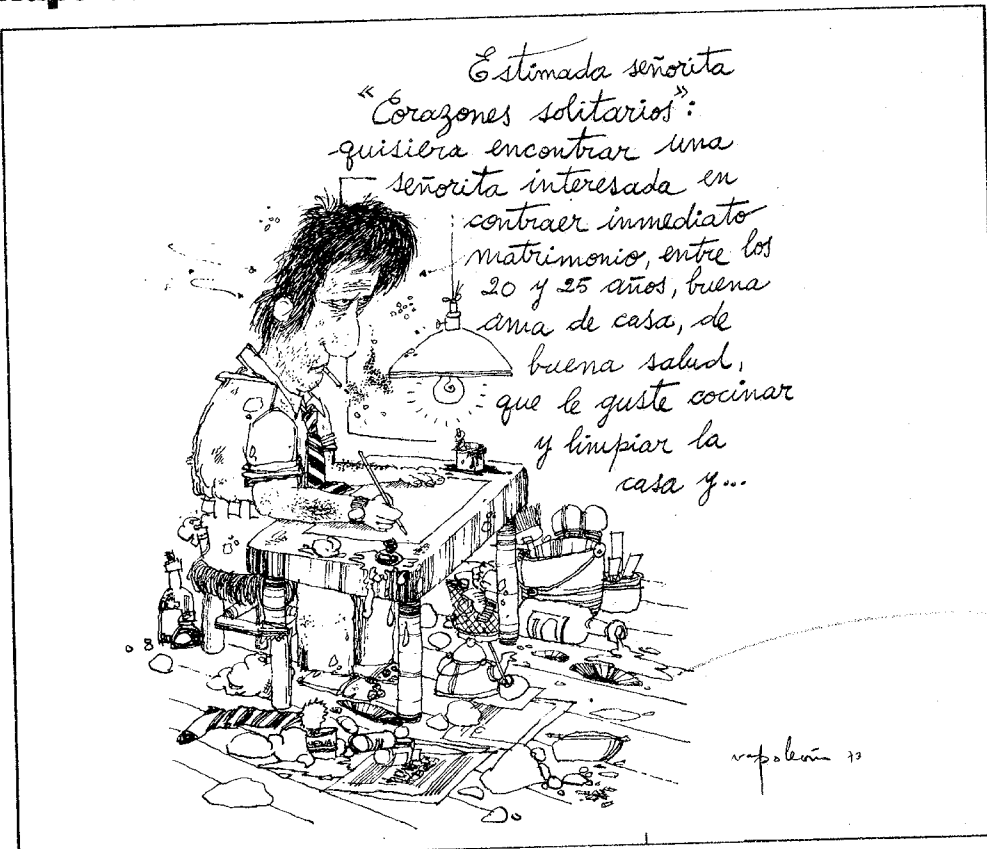 Estimada señorita
"Corazones solitarios":
quisiera encontrar una
señorita interesada en
contraer inmediato
matrimonio, entre los
20 y 25 años, buena
ama de casa, de
buena salud,
que le guste cocinar
y limpiar la
casa y...
napoleón 73